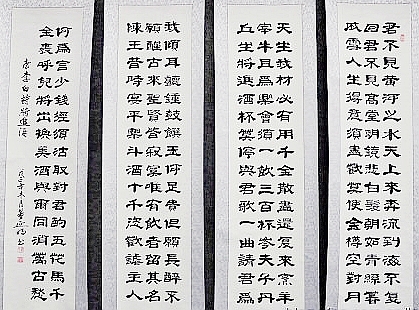 君不見黃河之水天上来奔流到海不復
回君不見高堂明鏡悲白髮朝如青絲暮
成雪人生得意須盡歡莫使金樽空對月
天生我材必有用千金散盡還復来烹羊
宰牛且爲樂會須一飲三百杯岑夫子丹
丘生將進酒杯莫停與君歌一曲請君爲
我傾耳聽鍾鼓饌玉何足貴但願長醉不
願醒古來聖賢皆寂寞惟有飲者留其名
陳王昔時宴平樂斗酒十千恣歡謔主人
何爲言少錢徑須沽取對君酌五花馬千
金裘呼兒將出換美酒與爾同消萬古愁
唐李白詩將進酒